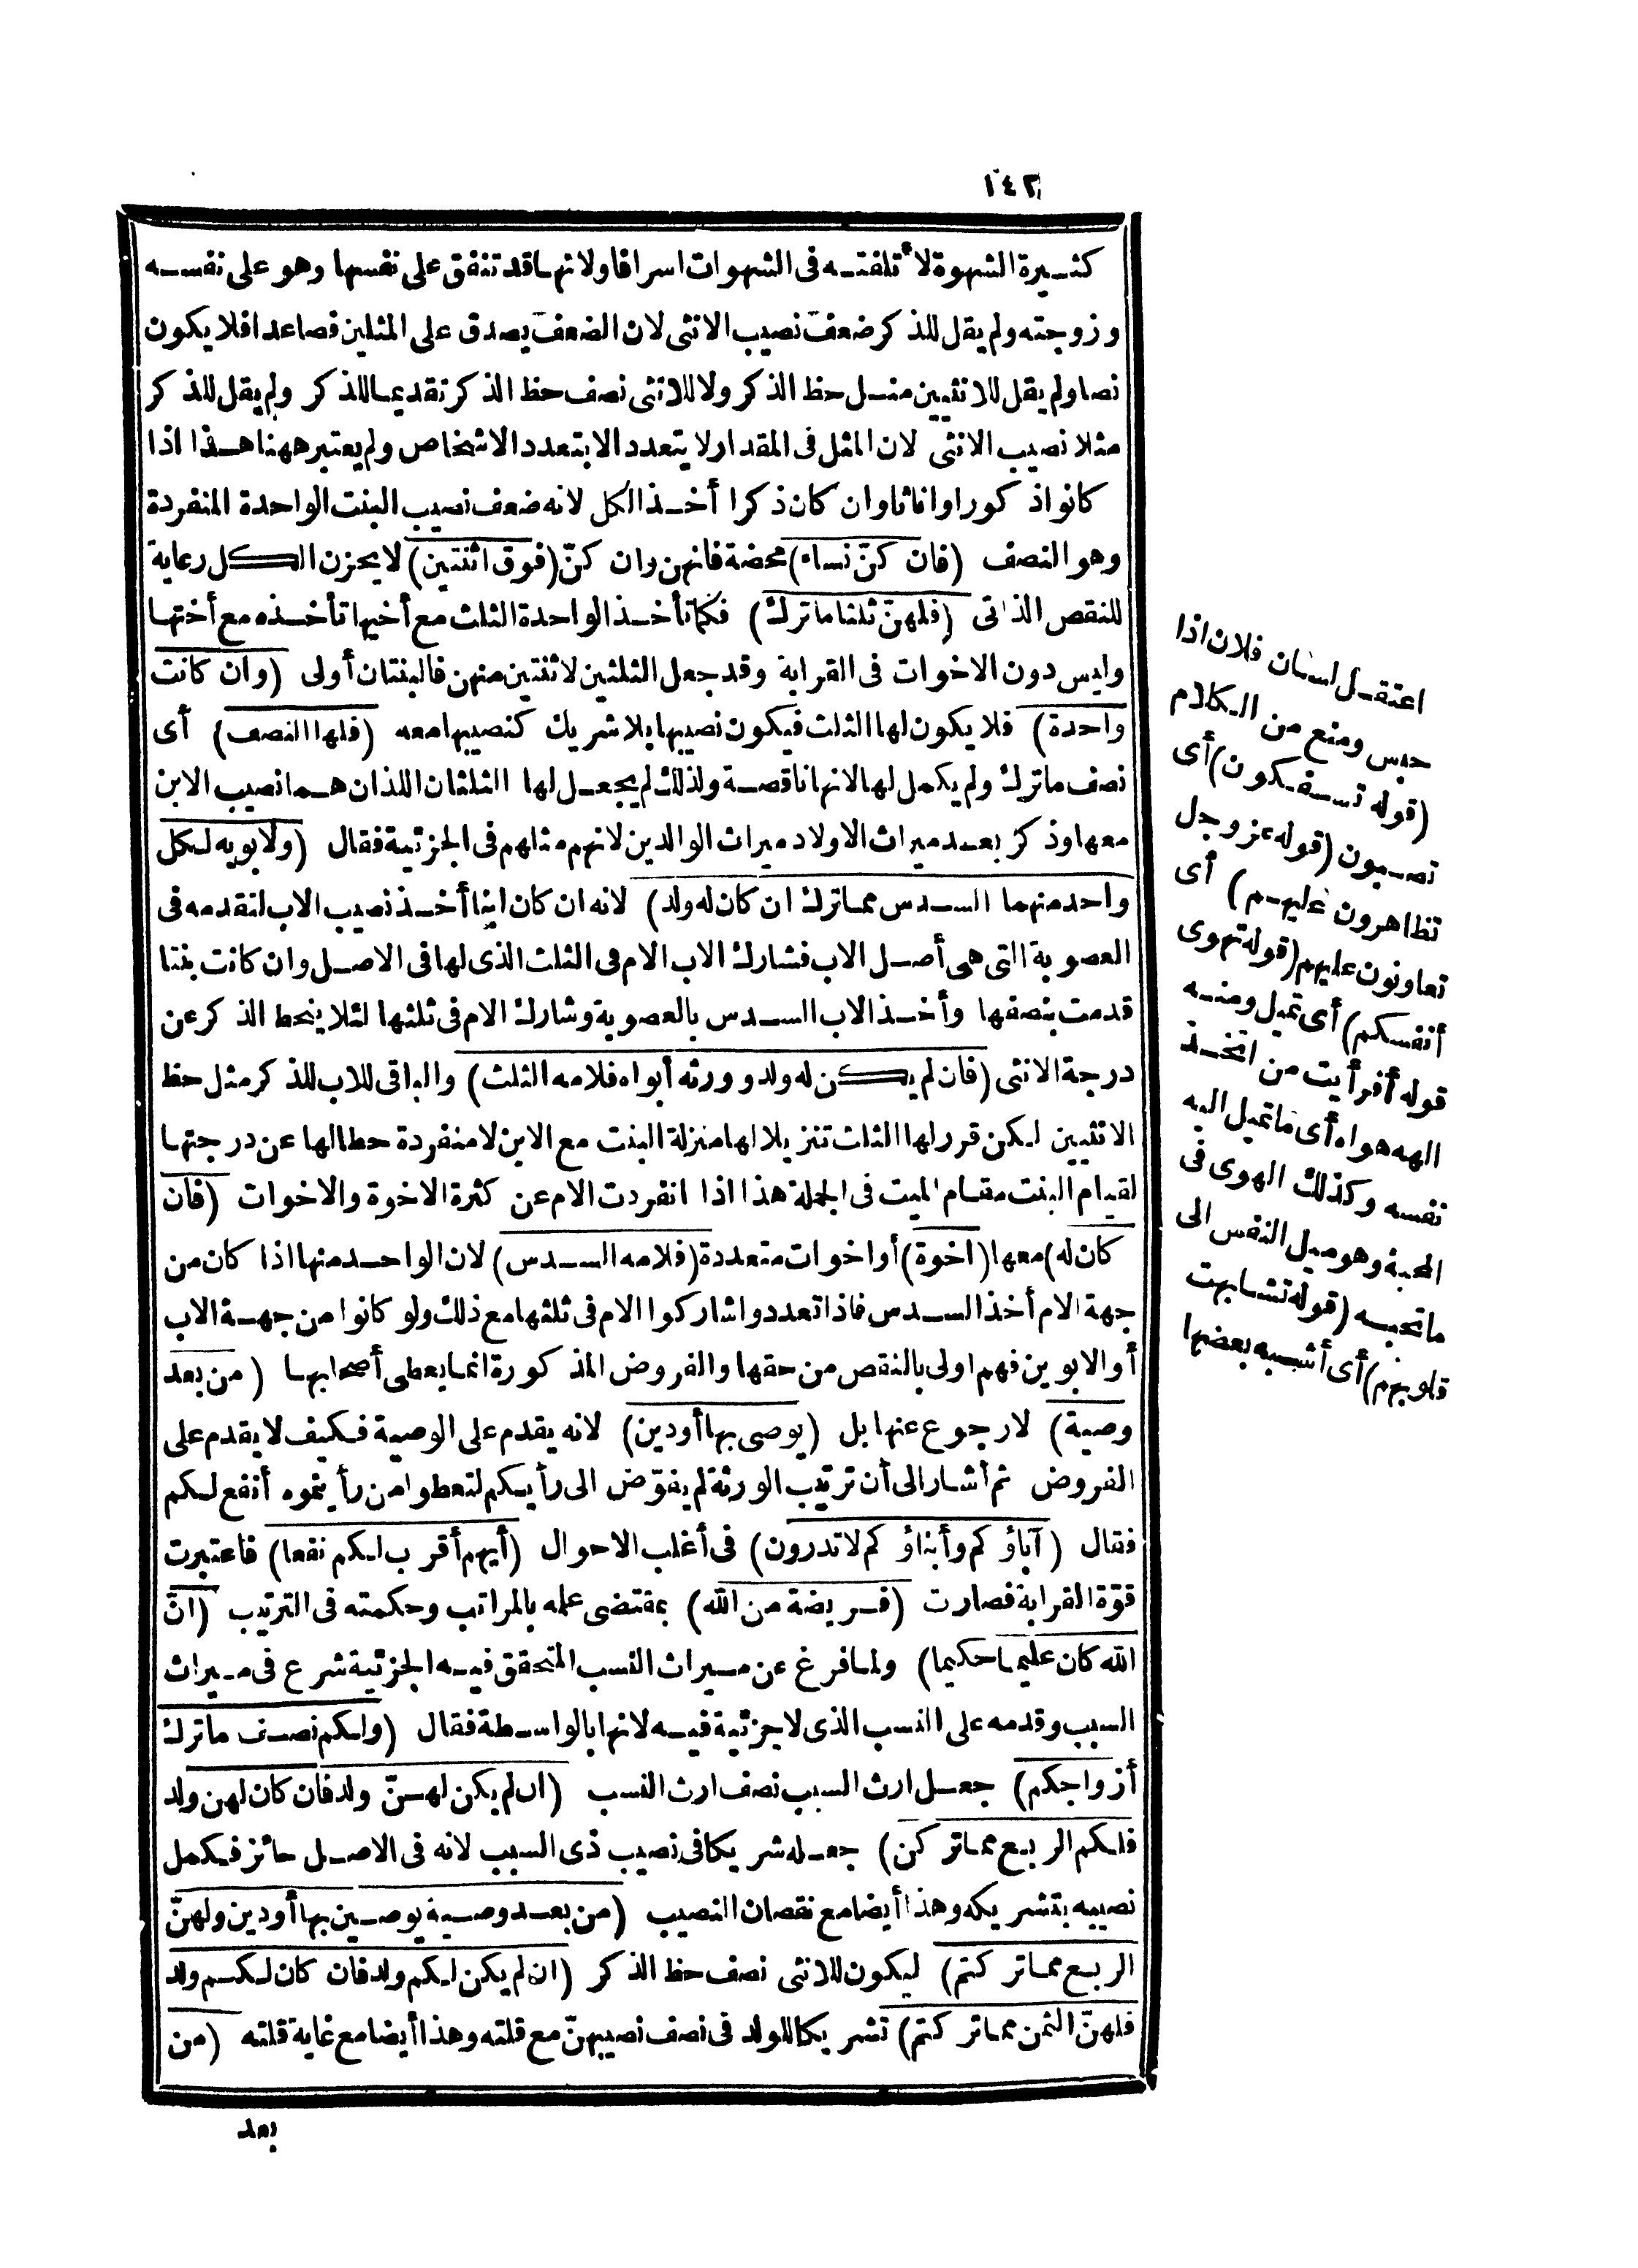 ١٤٢
كثيرة الشهوة لا تلفته فى الشهوات اسرافا ولانها قد تنفق على نفسها وهو على نفسه
وزوجته ولم يقل للذكر ضعف نصيب الانثى لان الضعف يصدق على المثلين فصاعدا فلا يكون
نصا ولم يقل للانثيين مثل حظ الذكر ولا للانثى نصف حظ الذكر تقديما للذكر ولم يقل للذكر
مثلا نصيب الانثى لان المثل فى المقدار لا يتعدد الا بتعدد الاشخاص ولم يعتبر ههنا هذا اذا
كانوا ذكورا واناثا وان كان ذكرا أخذ الكل لانه ضعف نصيب البنت الواحدة المنفردة
وهو النصف (فان كنّ نساء) محضة فانهن وان كنّ (فوق اثنتين) لا يحزن الكل رعاية
للنقص الذاتى (فلهنّ ثلثا ما ترك) فكما تأخذ الواحدة الثلث مع أخيها تأخذه مع أختها
وليس دون الاخوات فى القرابة وقد جعل الثلثين لاثنتين منهن فالبنتان أولى (وان كانت
واحدة) فلا يكون لها الثلث فيكون نصيبها بلا شريك كنصيبها معه (فلها النصف) أى
نصف ما ترك ولم يكمل لها لانها ناقصة ولذلك لم يجعل لها الثلثان اللذان هما نصيب الابن
معها وذكر بعد ميراث الاولاد ميراث الوالدين لانهم مثلهم فى الجزئية فقال (ولابويه لكل
واحد منهما السدس مما ترك ان كان له ولد) لانه ان كان ابنا أخذ نصيب الاب لتقدمه فى
العصوبة التى هى أصل الاب فشارك الاب الام فى الثلث الذى لها فى الاصل وان كانت بنتا
قدمت بنصفها وأخذ الاب السدس بالعصوبة وشارك الام فى ثلثها لئلا ينحط الذكر عن
درجة الانثى (فان لم يكن له ولد وورثه أبواه فلامه الثلث) والباقى للاب للذكر مثل حظ
الانثيين لكن قرر لها الثلث تنزيلا لها منزلة البنت مع الابن لا منفردة حطا لها عن درجتها
لقيام البنت مقام الميت فى الجملة هذا اذا انفردت الام عن كثرة الاخوة والاخوات (فان
كان له) معها (اخوة) أو اخوات متعددة (فلامه السدس) لان الواحد منها اذا كان من
جهة الام أخذ السدس فاذا تعددوا شاركوا الام فى ثلثها مع ذلك ولو كانوا من جهة الاب
أو الابوين فهم اولى بالنقص من حقها والفروض المذكورة انما يعطى أصحابها (من بعد
وصية) لا رجوع عنها بل (يوصى بها أو دين) لانه يقدم على الوصية فكيف لا يقدم على
الفروض ثم أشار الى أن ترتيب الورثة لم يفوّض الى رأيكم لتعطوا من رأيتموه أنفع لكم
فقال (آباؤكم وأبناؤكم لا تدرون) فى أغلب الاحوال (أيهم أقرب لكم نفعا) فاعتبرت
قوّة القرابة فصارت (فريضة من الله) بمقتضى علمه بالمراتب وحكمته فى الترتيب (انّ
الله كان عليما حكيما) ولما فرغ عن ميراث النسب المتحقق فيه الجزئية شرع فى ميراث
السبب وقدمه على النسب الذى لا جزئية فيه لانها بالواسطة فقال (ولكم نصف ما ترك
أزواجكم) جعل ارث السبب نصف ارث النسب (ان لم يكن لهنّ ولد فان كان لهن ولد
فلكم الربع مما تركن) جعله شريكا فى نصيب ذى السبب لانه فى الاصل حائز فيكمل
نصيبه بتشريكه وهذا أيضا مع نقصان النصيب (من بعد وصية يوصين بها أو دين ولهنّ
الربع مما تركتم) ليكون للانثى نصف حظ الذكر (ان لم يكن لكم ولد فان كان لكم ولد
فلهنّ الثمن مما تركتم) تشريكا للولد فى نصف نصيبهنّ مع قلته وهذا أيضا مع غاية قلته (من
بعد
اعتقل لسان فلان اذا
حبس ومنع من الكلام
(قوله تسفكون) أى
تصبون (قوله عز وجل
تظاهرون عليهم) أى
تعاونون عليهم (قوله تهوى
أنفسكم) أى تميل ومنه
قوله أفرأيت من اتخذ
الهه هواه أى ما تميل اليه
نفسه وكذلك الهوى فى
المحبة وهو ميل النفس الى
ما تحبه (قوله تشابهت
قلوبهم) أى أشبه بعضها